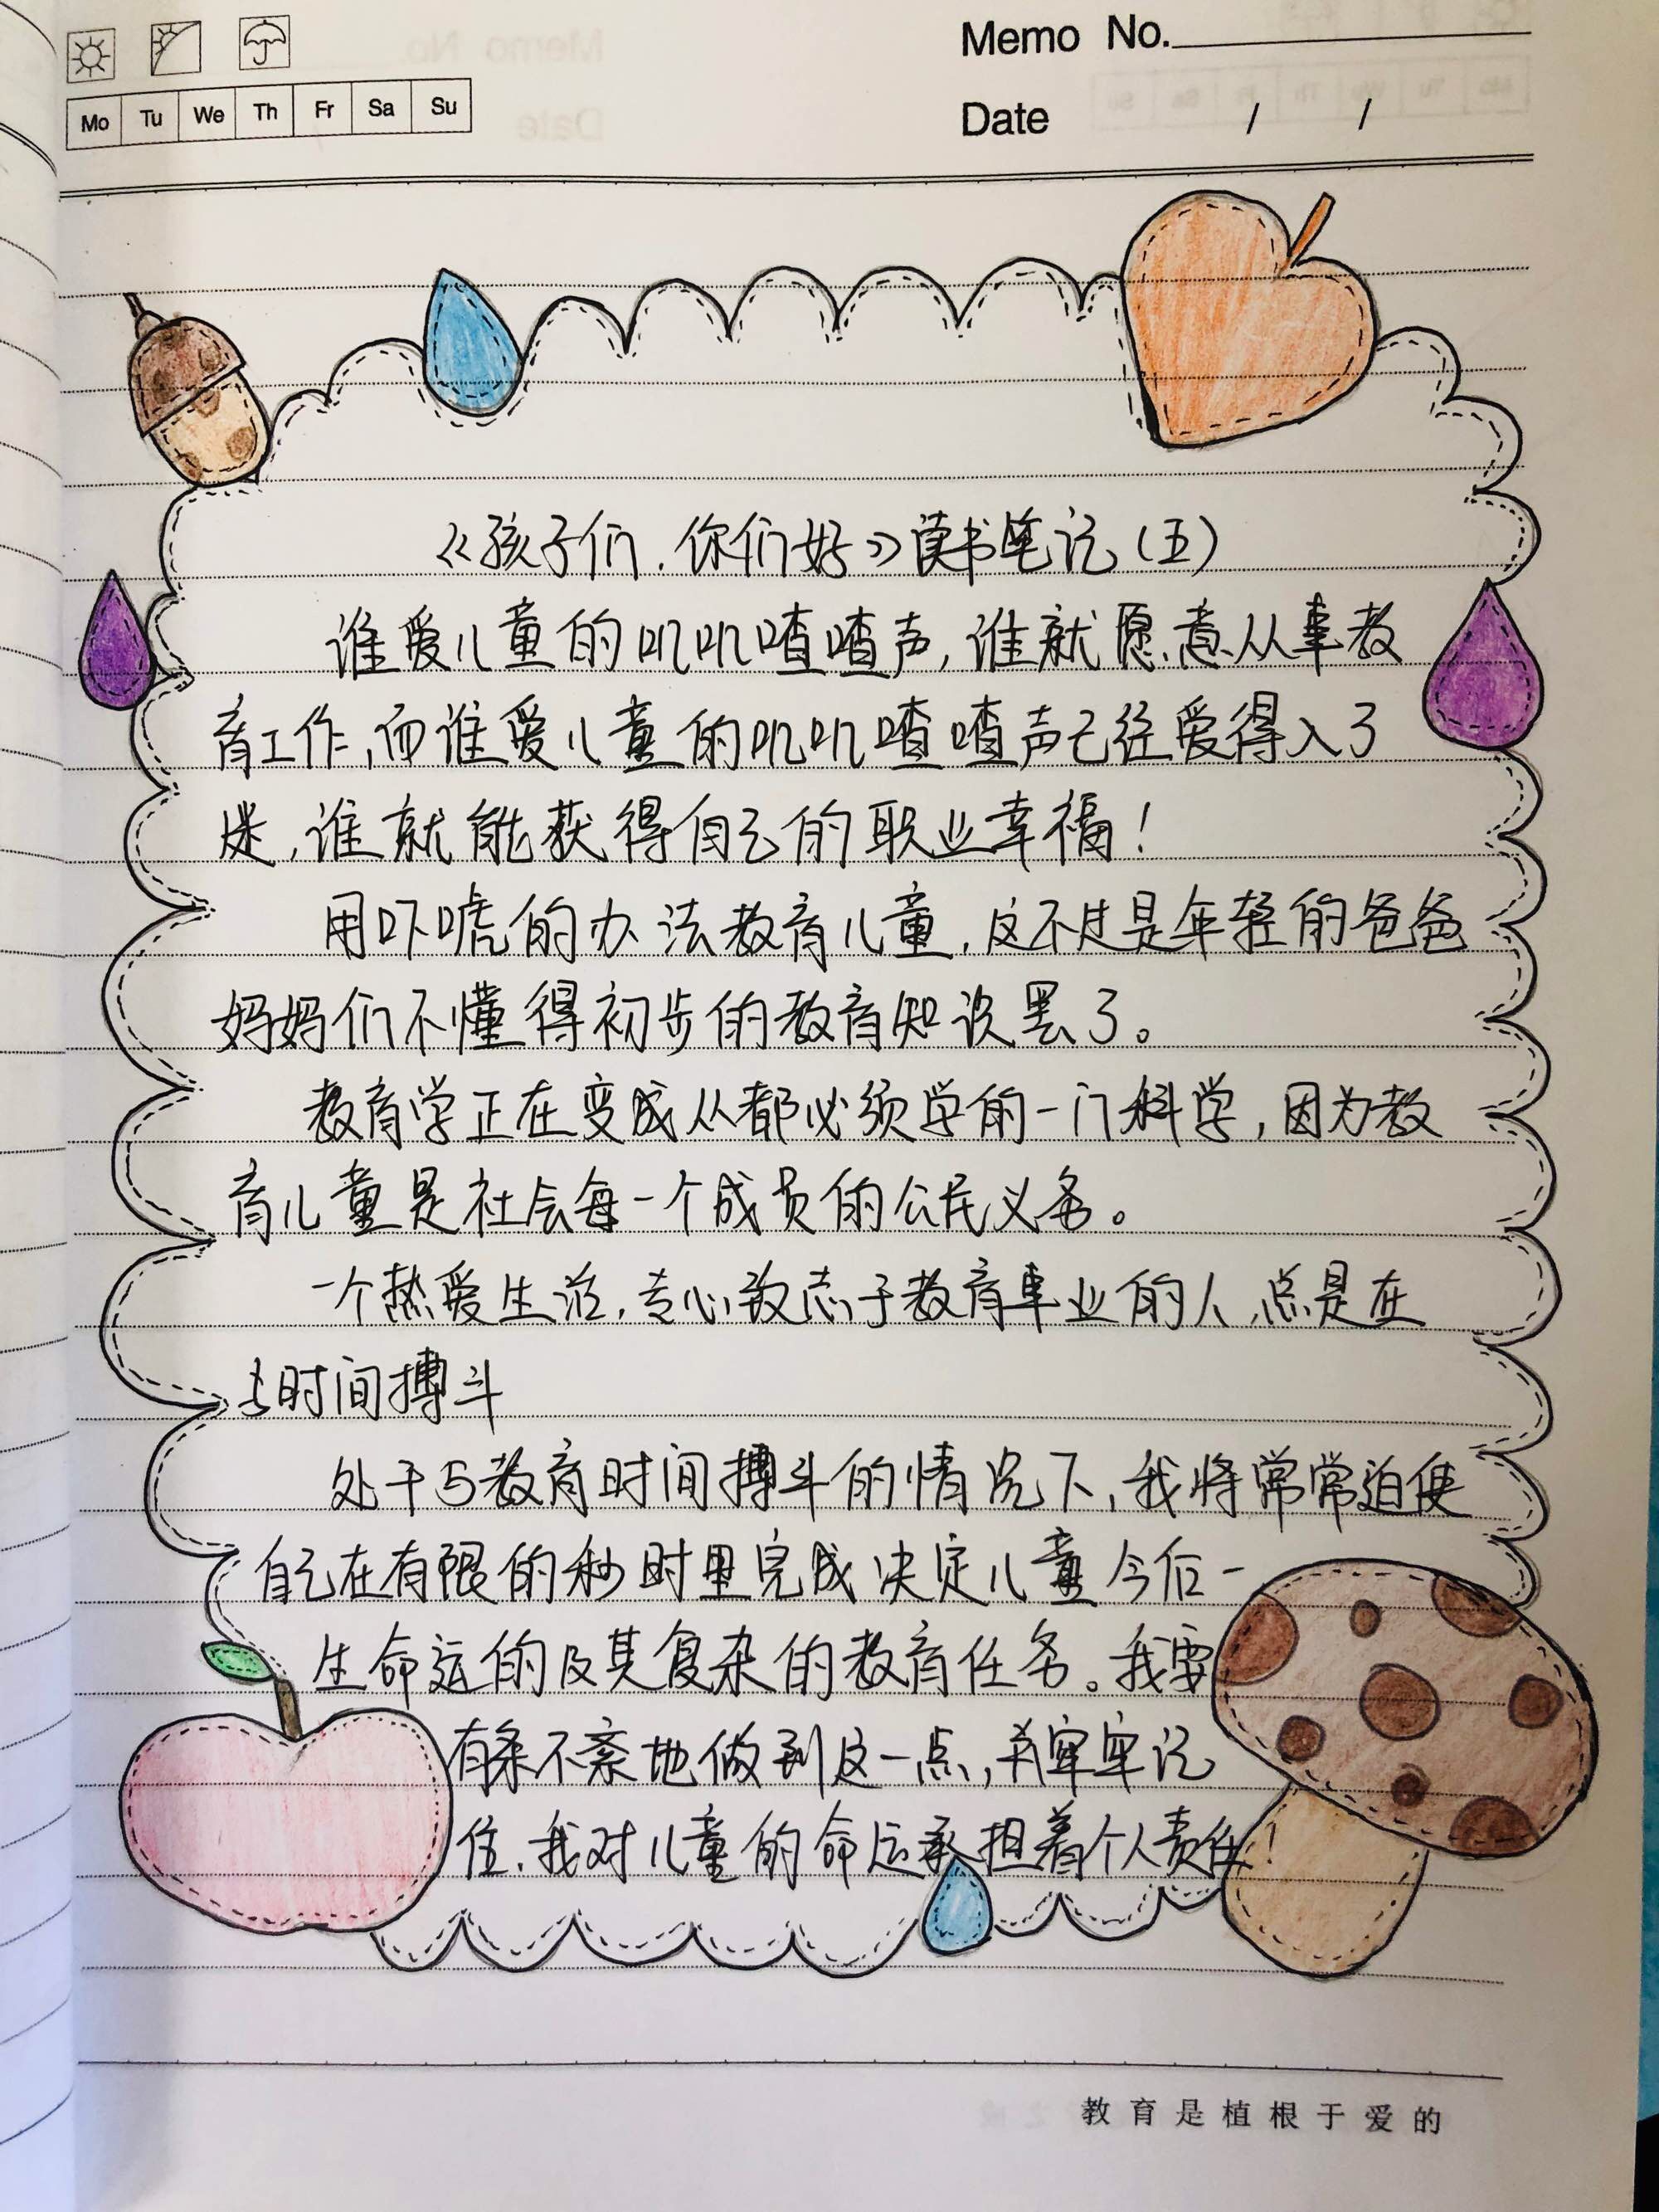 Memo No.
Mo Tu We Th Fr Sa Su
Date / /
《孩子们,你们好》读书笔记(五)
谁爱儿童的叽叽喳喳声,谁就愿意从事教
育工作,而谁爱儿童的叽叽喳喳声已经爱得入了
迷,谁就能获得自己的职业幸福!
用吓唬的办法教育儿童,这不过是年轻的爸爸
妈妈们不懂得初步的教育知识罢了。
教育学正在变成人都必须学的一门科学,因为教
育儿童是社会每一个成员的公民义务。
一个热爱生活,专心致志于教育事业的人,总是在
与时间搏斗
处于与教育时间搏斗的情况下,我将常常迫使
自己在有限的秒时里完成决定儿童今后一
生命运的及其复杂的教育任务。我要
有条不紊地做到这一点,并牢牢记
住,我对儿童的命运承担着个人责任!
教育是植根于爱的